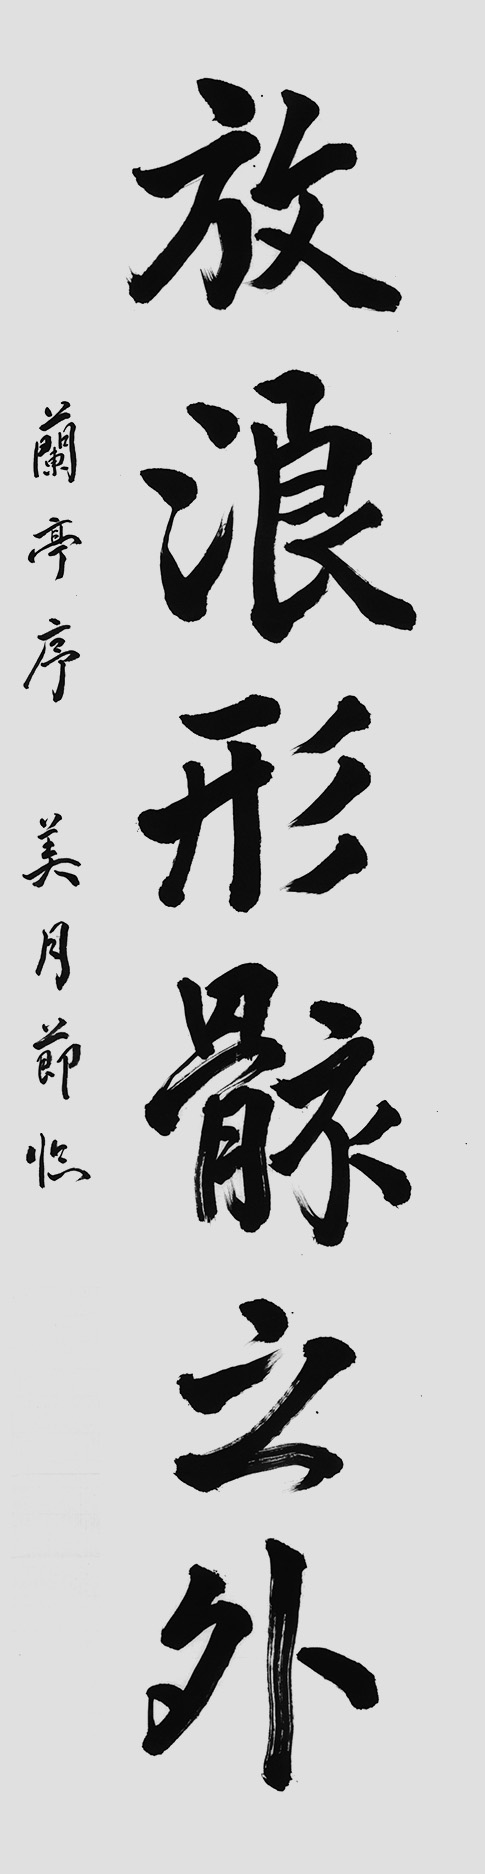 放浪形骸之外
蘭亭序 美月節臨